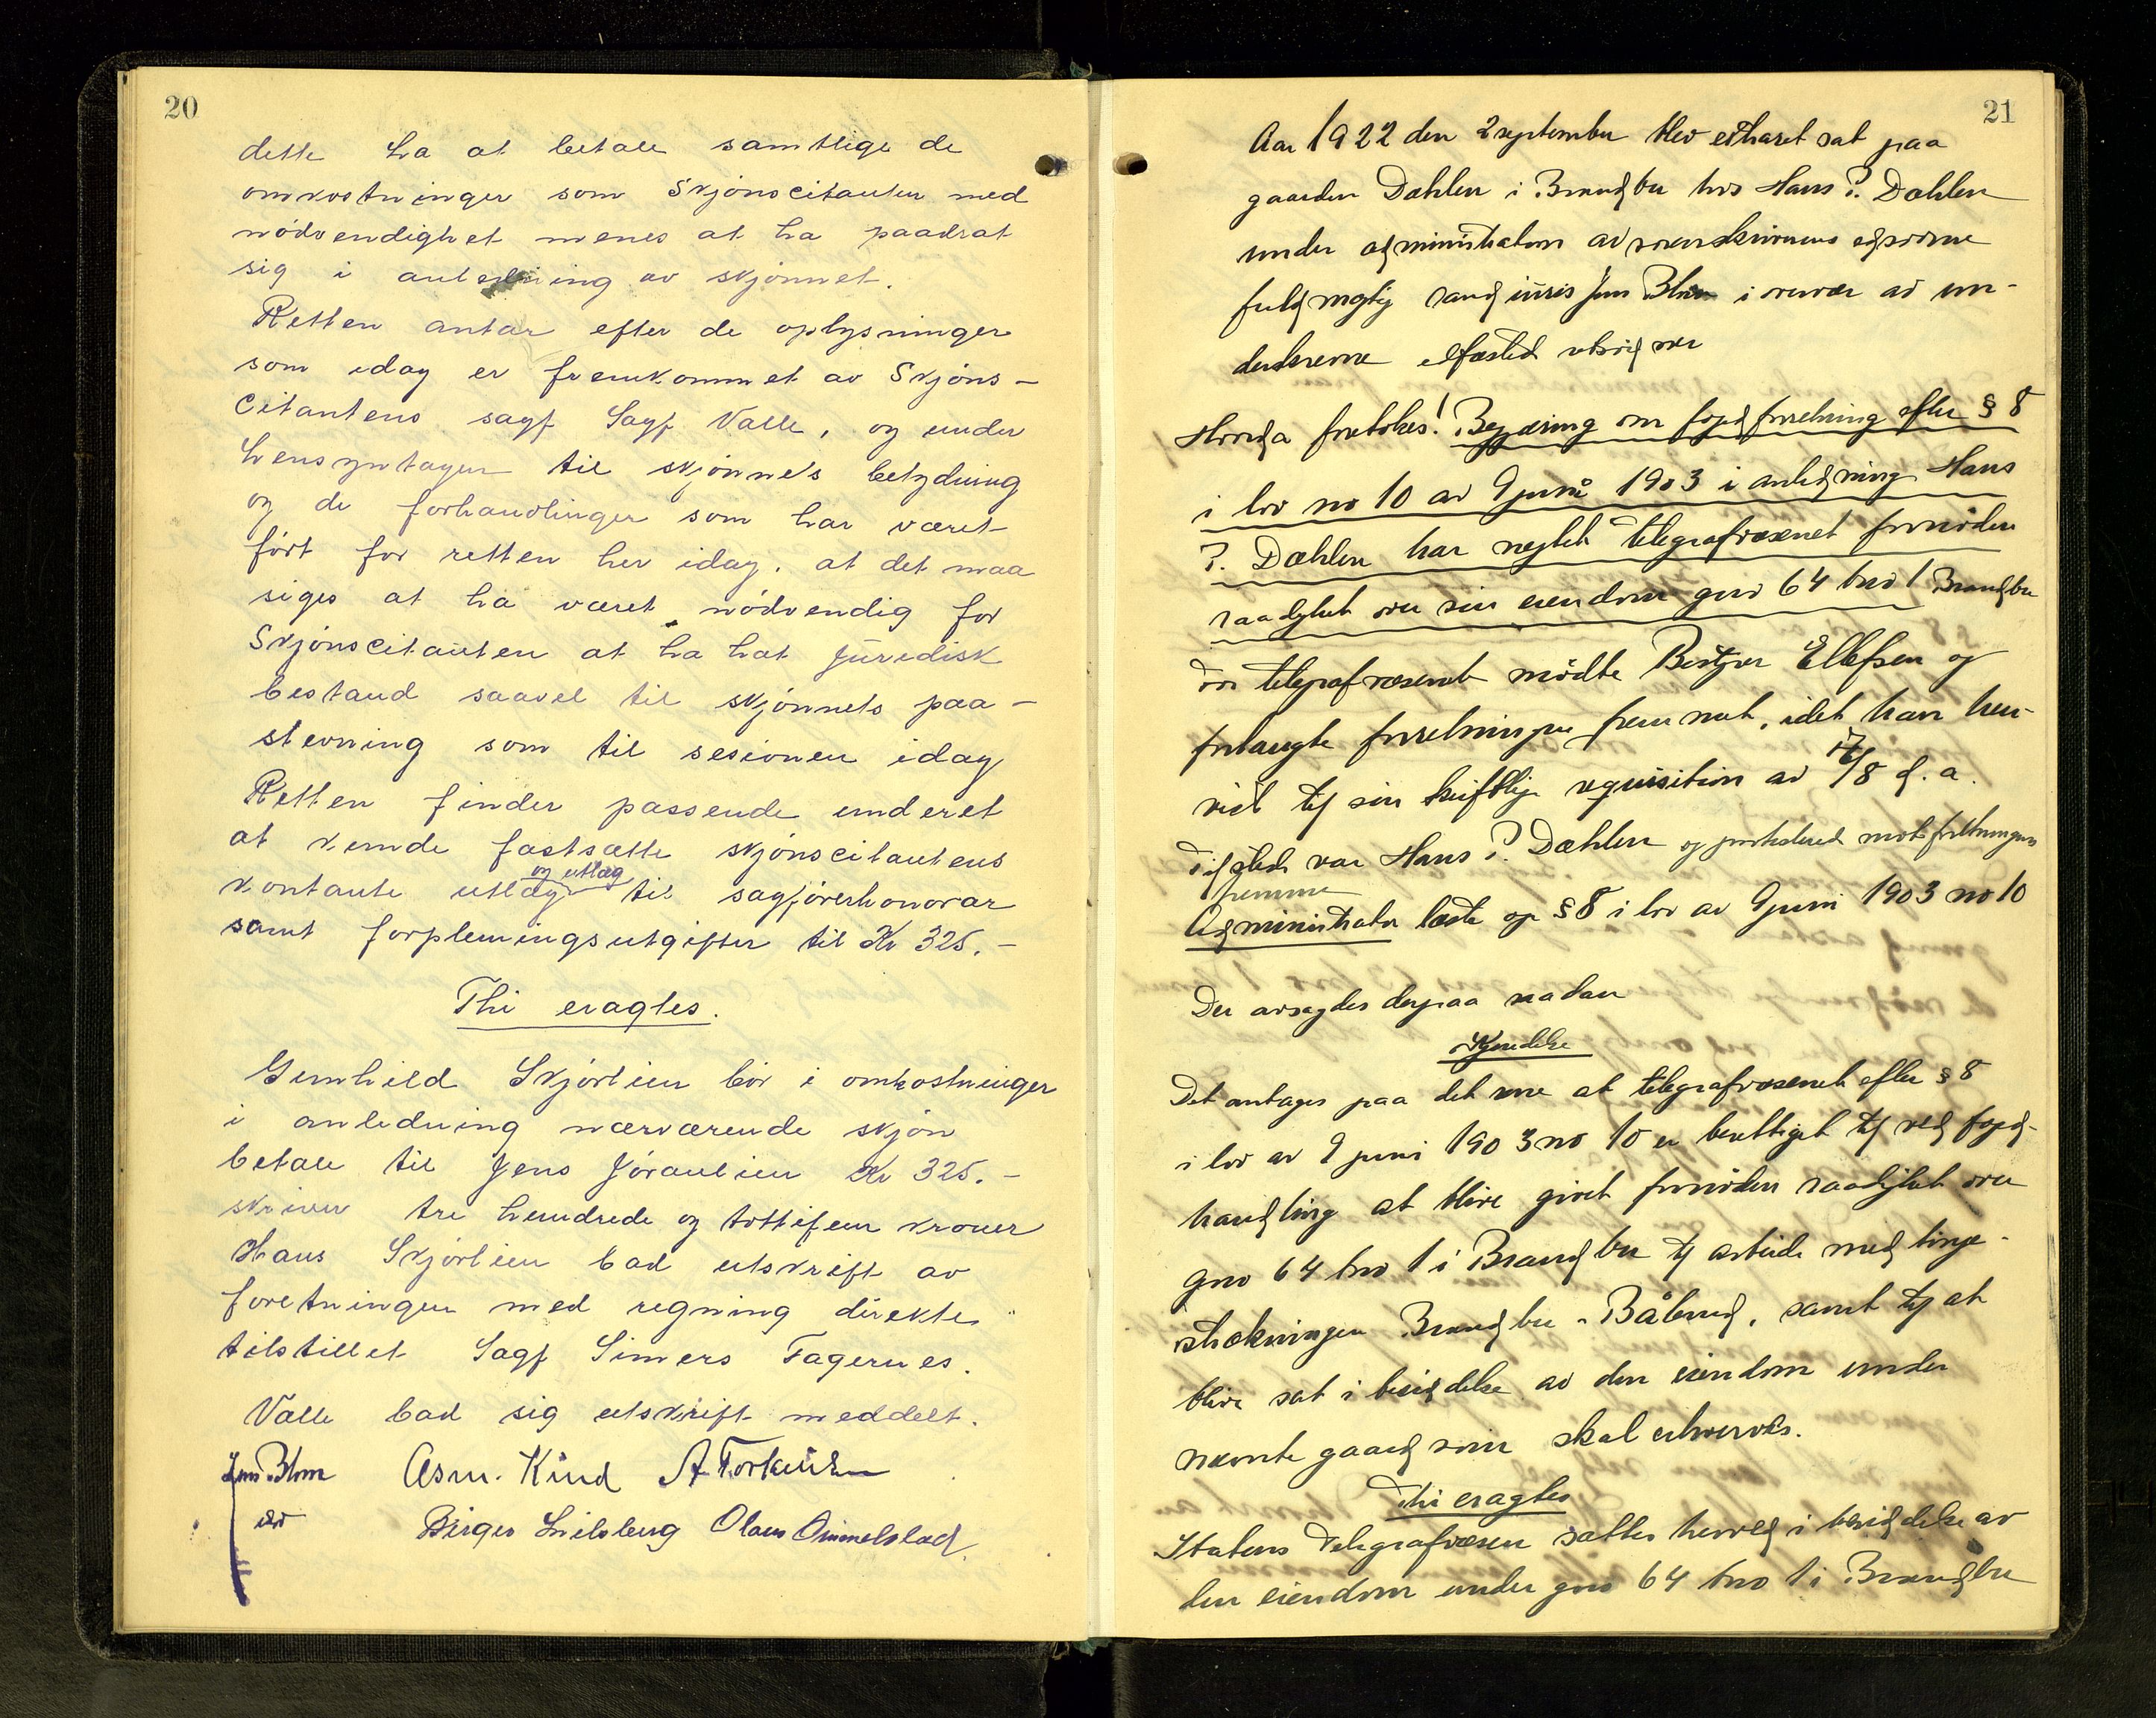 20
dette ha at betale samtlige de
omkostninger som Skjønscitanten med
nødvendighet menes at ha paadrat
sig i anledning av skjønnet.
Retten antar efter de oplysninger
som idag er fremkommet av Skjøns-
citantens sagf Sagf Valle, og under
hensyntagen til skjønnets betydning
og de forhandlinger som har været
ført for retten her idag, at det maa
siges at ha været nødvendig for
Skjønscitanten at ha hat juridisk
bestand saavel til skjønnets paa-
stevning som til sesionen idag
Retten finder passende under et
at kunde fastsætte skjønscitantens
og utlæg
kontante utlæg til sagførerhonorar
samt forpleiningsutgifter til Kr 325.-
Thi eragtes.
Gunhild Skjørlien bør i omkostninger
i anledning nærværende skjøn
betale til Jens Jøranlien Kr 325.-
skriver tre hundrede og tottifem kroner
Hans Skjørlien bad utskrift av
foretningen med regning direkte
tilstillet Sagf Simers Fagernes.
Valle bad sig utskrift meddelt.
Jens Blom Asm. Kind A. Torkeidsen
Birger Lilsberg Olaus Ommelstad
21
Aar 1922 den 2 september blev ethæret sat paa
gaarden Dæhlen i Brandbu hos Hans P. Dæhlen
under administation av sorenskriverens edsvorne
fuldmægtig cand juris Jens Blom i overvær av un-
derskrevne
Hvorda foretokes! Begjæring om fogdforretning efter § 8
i lov no 10 av 9 juni 1903 i anledning Hans
P. Dæhlen har nægtet telegrafvæsenet fornøden
raadighet over sin eiendom gno 64 bno 1 Brandbu
For telegrafvæsenet mødte Bestyrer Ellefsen og
forlangte forretningen fremmet, idet han hen-
vist til sin skriftlige requisition av 17/8 d. a.
Tilstede var Hans P. Dæhlen og protestered mot forretningens
fremme
Administrator læste op § 8 i lov av 9 juni 1903 no 10
Der avsagdes derpaa saadan
Kjendelse
Det antages paa det rene at telegrafvæsenet efter § 8
i lov av 9 juni 1903 no 10 er berettiget til ved fogd-
handling at blive givet fornøden raadighet over
gno 64 bno 1 i Brandbu til arbeide med linje-
strækningen Brandbu - Bålerud, samt til at
blive sat i besiddelse av den eiendom under
nævnte gaard som skal erhverves.
Thi eragtes
Statens Telegrafvæsen sættes herved i besiddelse av
den eiendom under gno 64 bno 1 i Brandbu